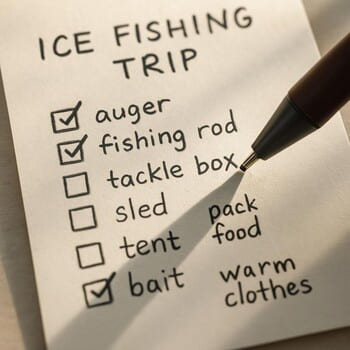 ICE FISHING
TRIP
auger
fishing rod
tackle box
sled
tent
bait
pack
food
warm
clothes